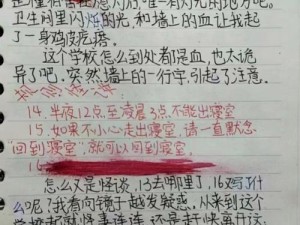 卫生间里闪烁的光,和墙上的血让我起
了一身鸡皮疙瘩。
这个学校怎么到处都是血,也太诡
异了吧。突然墙上的一行字引起了注意。
14.半夜12点至凌晨3点,不能出寝室
15.如果不小心走出寝室,请一直默念
"回到寝室"就可以回到寝室
16
怎么又是怪谈,13去哪里了,16又写了什
么呢?我看向镜子越发疑惑,从来到这个